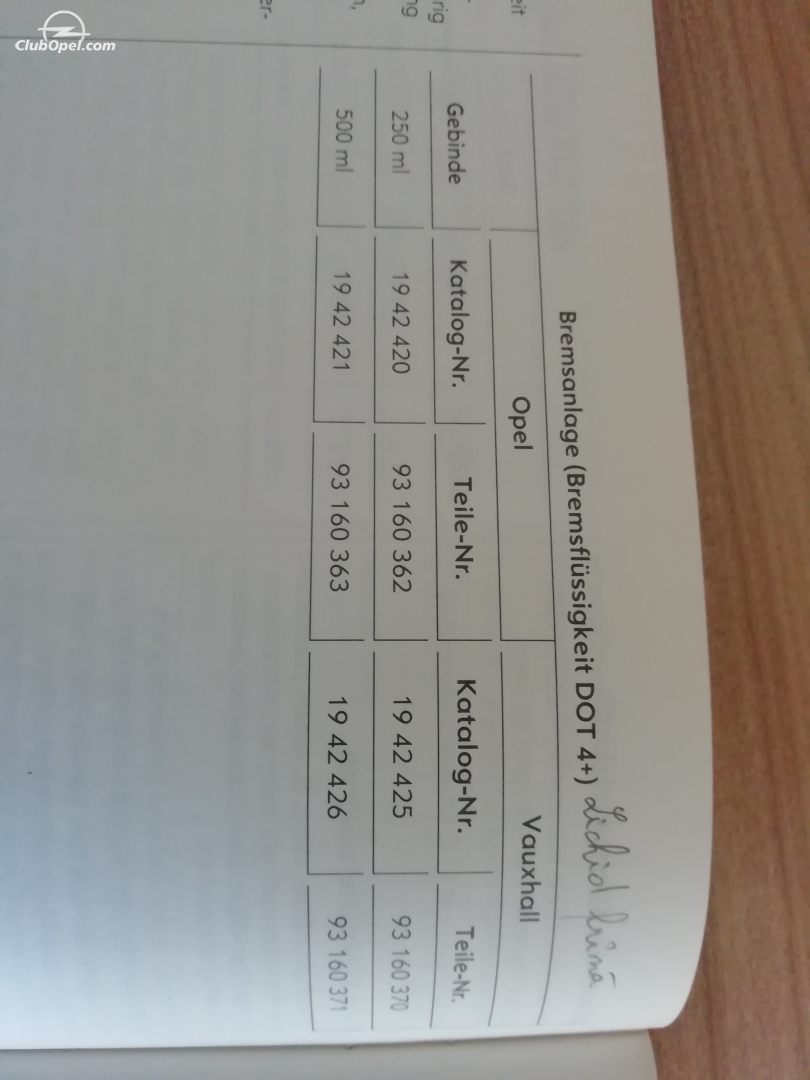 ClubOpel.com
eit
rig
ng
n,
er-
Bremsanlage (Bremsflüssigkeit DOT 4+) Lichid frână
Opel Vauxhall
Gebinde Katalog-Nr. Teile-Nr. Katalog-Nr. Teile-Nr.
250 ml 19 42 420 93 160 362 19 42 425 93 160 370
500 ml 19 42 421 93 160 363 19 42 426 93 160 371